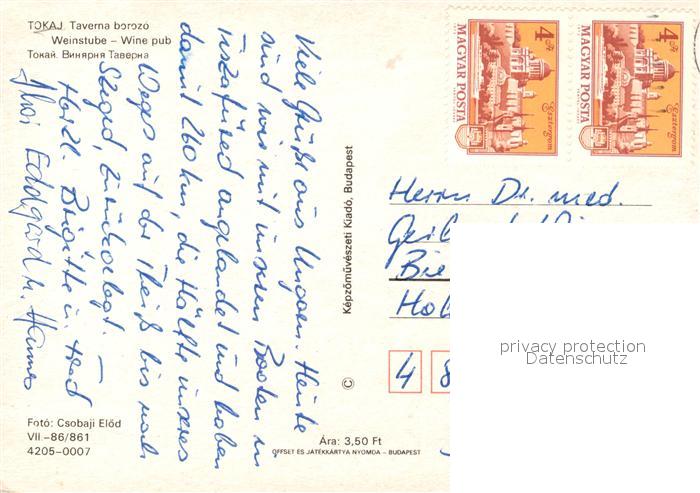 TOKAJ. Taverna borozó
Weinstube – Wine pub
Токай. Винярня Таверна
Viele Grüße aus Ungarn. Heute
sind wir mit unseren Booten in
Tiszafüred angelandet und haben
damit 260 km, die Hälfte unseres
Weges auf der Theiß bis nach
Szeged, zurückgelegt. –
Herzl. Brigitte u. Fred
Eddgard u. Hannes
Fotó: Csobaji Előd
VII.–86/861
4205-0007
Képzőművészeti Kiadó, Budapest
©
Ára: 3,50 Ft
OFFSET ÉS JÁTÉKKÁRTYA NYOMDA – BUDAPEST
4 Ft
MAGYAR POSTA
Esztergom
4 Ft
MAGYAR POSTA
Esztergom
Herrn Dr. med.
4 8
privacy protection
Datenschutz